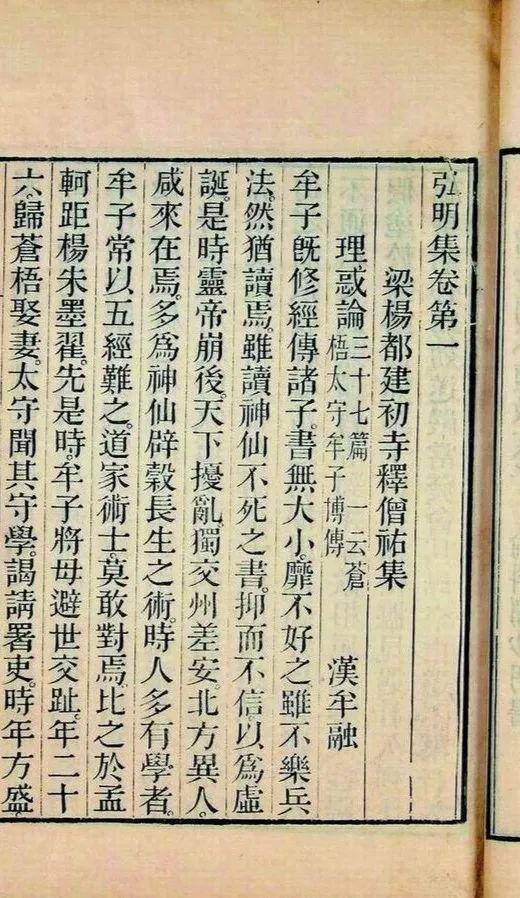 弘明集卷第一
梁楊都建初寺釋僧祐集
理惑論 三十七篇 一云蒼梧太守牟子博傳 漢牟融
牟子既修經傳諸子。書無大小。靡不好之雖不樂兵
法。然猶讀焉。雖讀神仙不死之書。抑而不信。以爲虛
誕。是時靈帝崩後。天下擾亂。獨交州差安。北方異人。
咸來在焉。多爲神仙辟穀長生之術。時人多有學者。
牟子常以五經難之。道家術士。莫敢對焉。比之於孟
軻距楊朱墨翟。先是時。牟子將母避世交趾。年二十
六。歸蒼梧娶妻。太守聞其守學。謁請署吏。時年方盛。